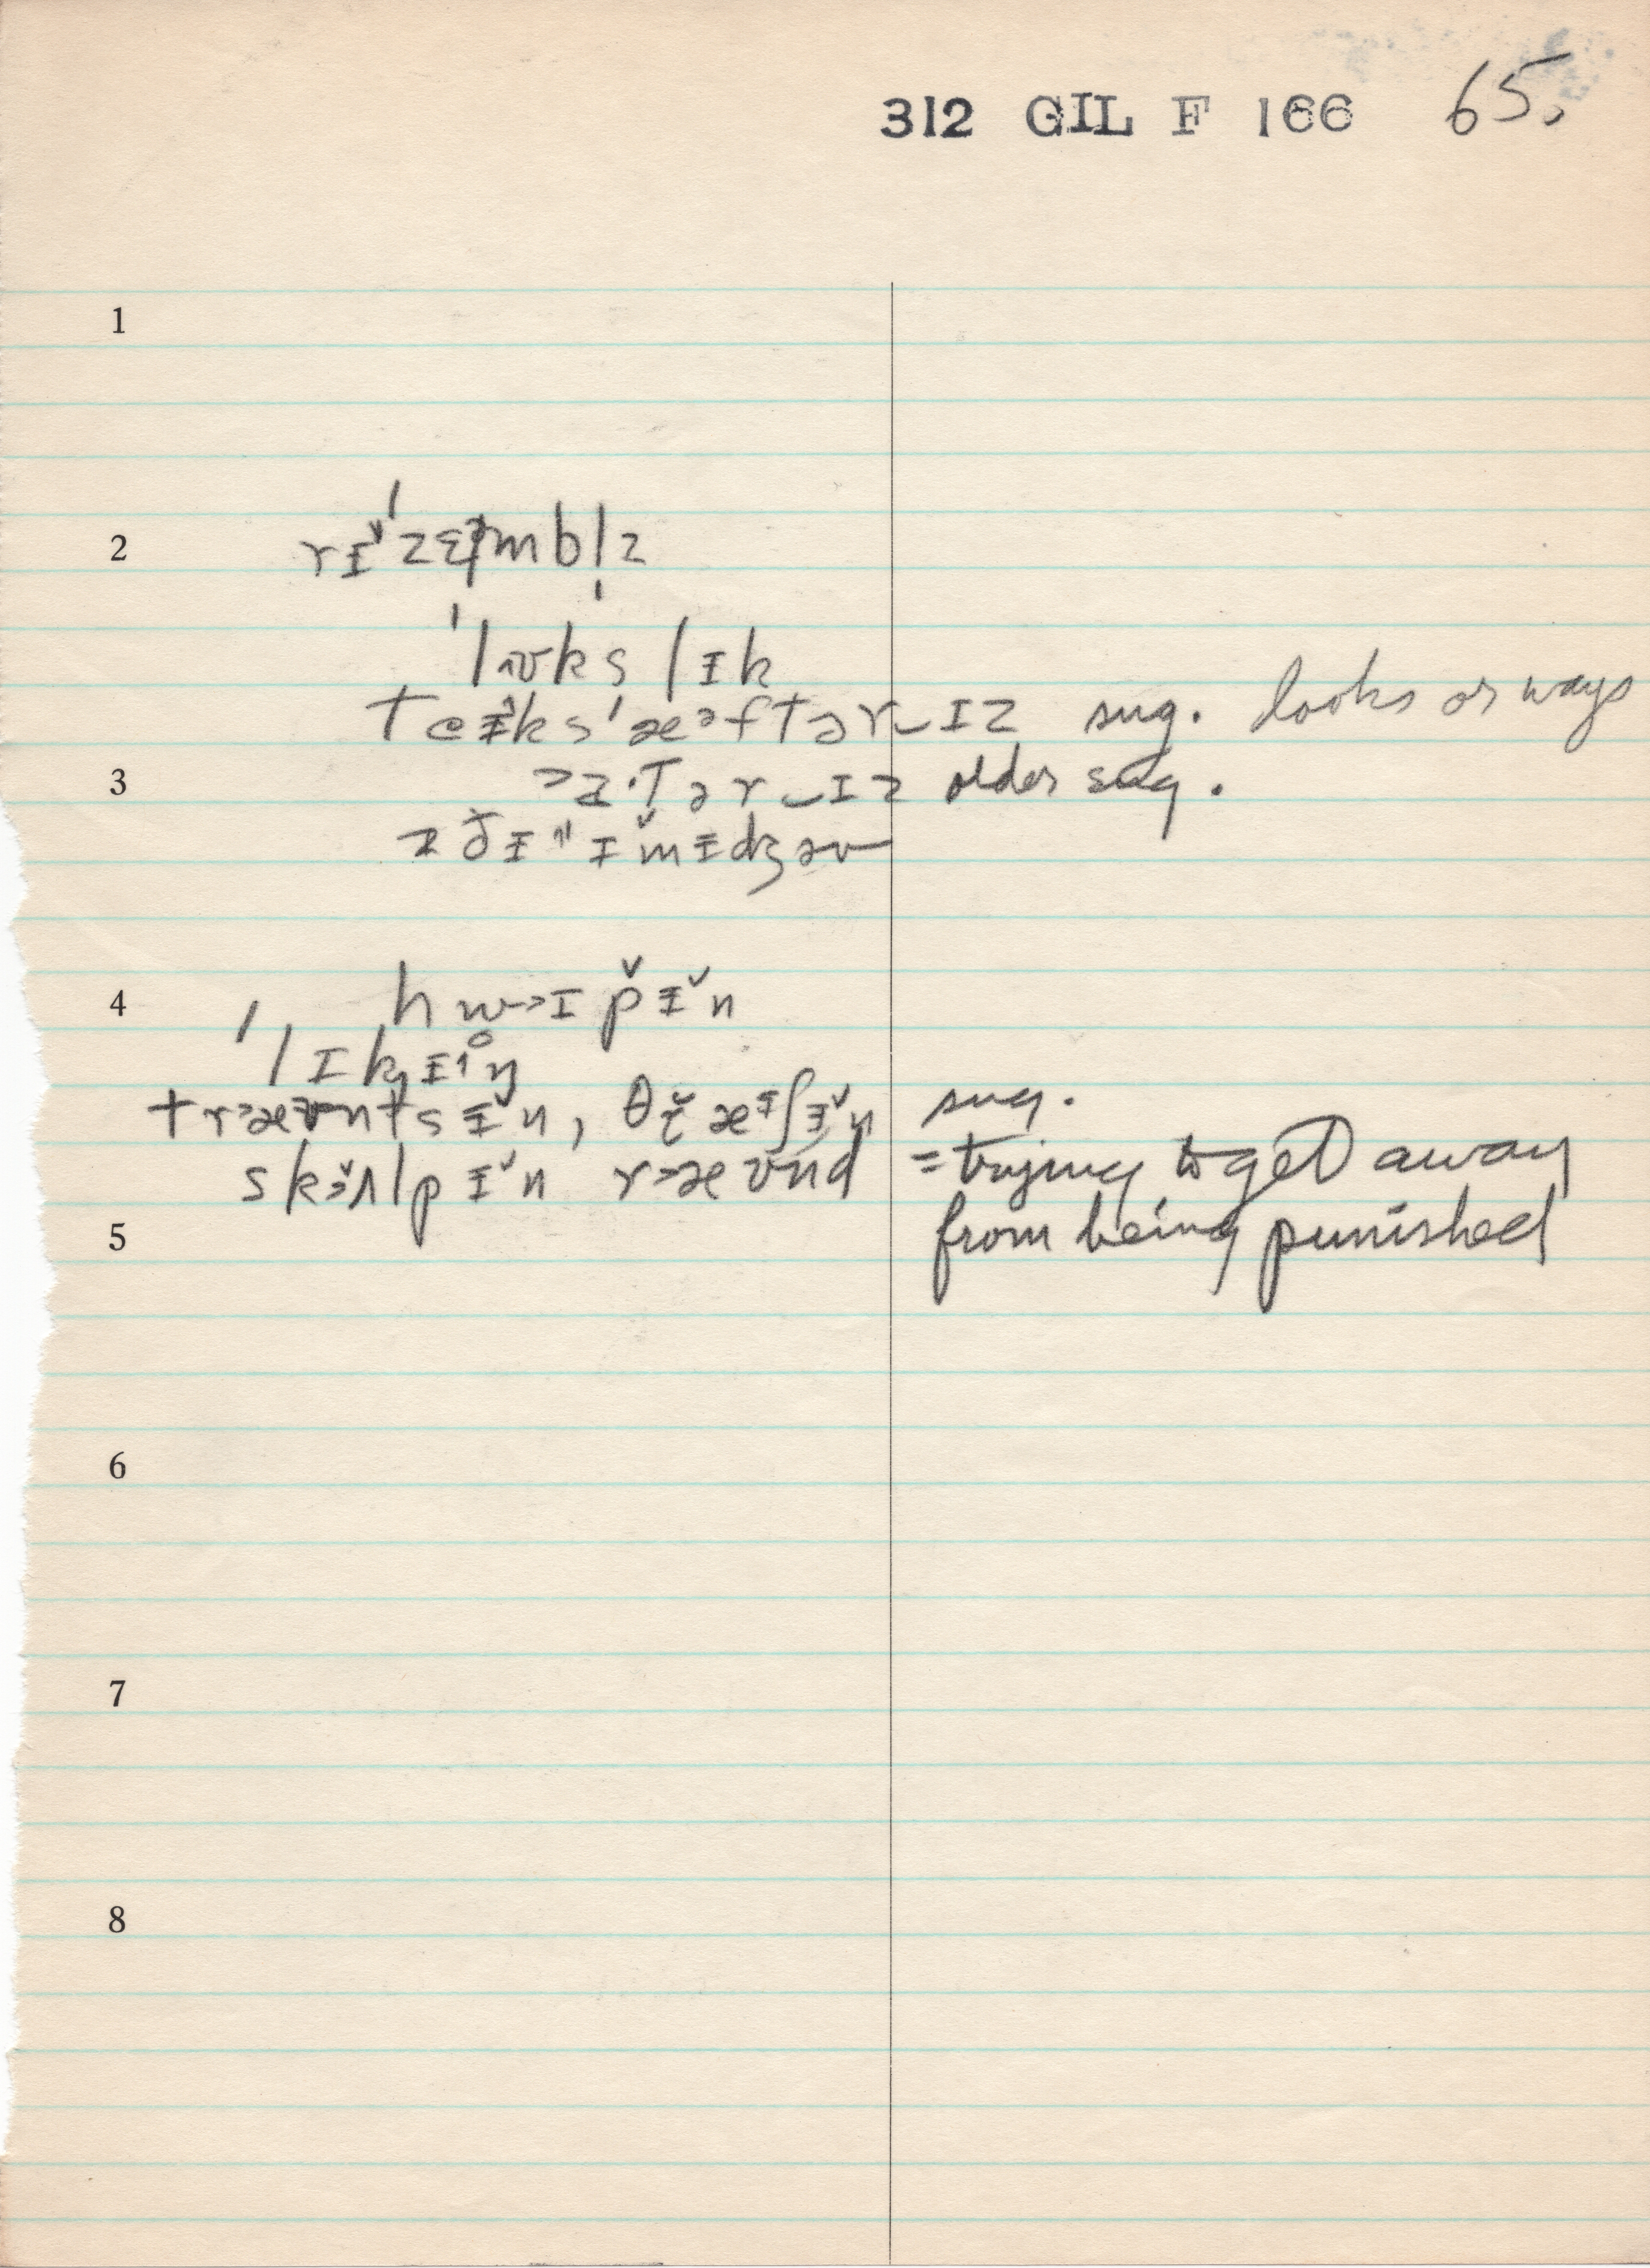 312 GIL F 166 65.
1
2 rɪ̵̌ˈzɛmbl̩z
ˈlʊks lɪk
teɪ̵ks ˈæᵊftər‿ɪz sug. looks or ways
3 tər‿ɪz older sug.
z ðɪ̵ ɪ̵mɪ̵dʒəv
4 hwɪpɪ̵̌n
ˈlɪkɪ̵ŋ
træʊntsɪ̵̌n, θræɪ̵ʃɪ̵̌n sug.
skʌlpɪ̵̌n ræʊnd = trying to get away
5 from being punished
6
7
8